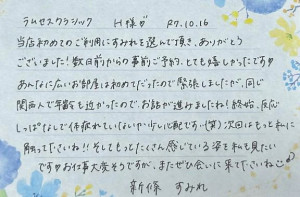 ラムセスクラシック H様♂ R7.10.16
当店初めてのご利用にすみれを選んで頂き、ありがとう
ございました!数日前からの事前ご予約、とても嬉しかったです♡
あんなに広いお部屋は初めてだったので緊張しましたが、同じ
関西人で年齢も近かったので、お話が進みましたね!終始、反応
しっぱなしで体疲れていないか少し心配です(笑)次回はもっと私に
触って下さいね!!そしてもっとたくさん感じている姿を私も見たい
です♡お仕事大変そうですが、またぜひ会いに来て下さいね
新條 すみれ